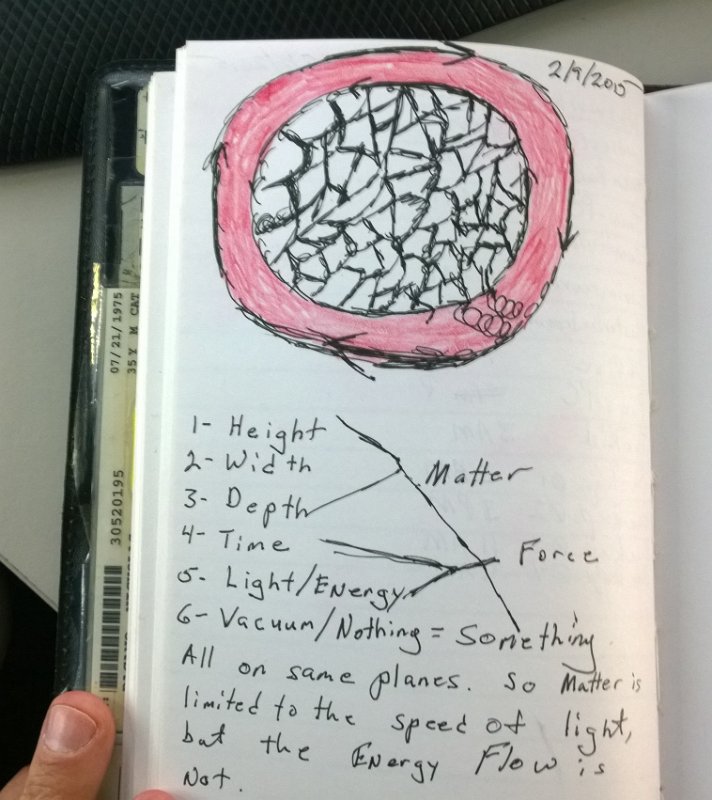 2/9/2015
1- Height
2- Width
Matter
3- Depth
4- Time
Force
5- Light/Energy
6- Vacuum/Nothing = Something
All on same planes. So Matter is
limited to the speed of light,
but the Energy Flow is
Not.
07/21/1975
35Y M CAT
30520195